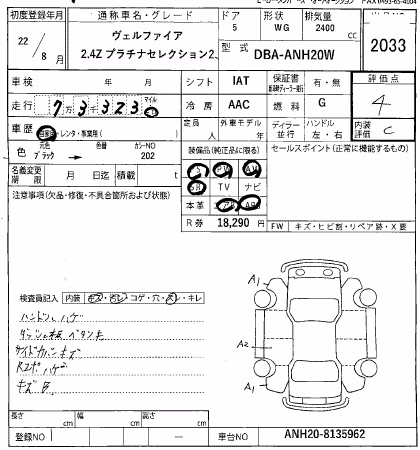 初度登録年月
22/8月
通称車名・グレード
ヴェルファイア
2.4Z プラチナセレクション2.
ドア
5
形状
WG
排気量
2400
cc
型式
DBA-ANH20W
2033
車検 年 月
シフト IAT
保証書
有・無
評価点
4
走行 7万3千323
マイル
冷房 AAC
燃料 G
車歴
自家・レンタ・事業用( )
定員
人
外車モデル
年
ディーラー
並行
ハンドル
左・右
内装
評価 C
色
元色
ブラック
色番
カラーNO
202
装備品(純正品に限る)
セールスポイント(正常に機能するもの)
S PS AW
SR TV ナビ
本革 エアB ABS
名義変更
期限 月 日
R券 18,290 円
注意事項(欠品・修復・不具合箇所および状態)
FW キズ・ヒビ割・リペア跡・X要
検査員記入 内装 キズ・汚レ・コゲ・穴・スレ・キレ
ハンドルハゲ
A1
A2
A1
長さ cm 幅 cm 高さ cm
登録NO
車台NO ANH20-8135962